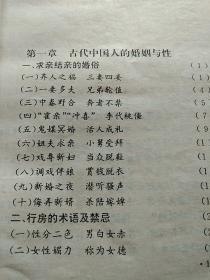 第一章 古代中国人的婚姻与性
一、求亲结亲的婚俗 (1)
(一)养人之福 三妻四妾 (1)
(二)一妻多夫 兄弟轮值 (
(三)中春野合 奔者不禁 (
(四)“霍亲”“冲喜” 李代桃僵 (
(五)鬼媒冥婚 活人成礼 (
(六)姐夫求亲 小舅受拜 (
(七)戏辱新妇 当众脱鞋 (
(八)调戏伴娘 賞钱脱衣 (
(九)新婚之夜 潜听骚声 (
(十)侮弄新婿 杀陪嫁婶 (
二、行房的术语及禁忌 (
(一)性分二色 男白女赤 (
(二)女性媚力 称为女德 (